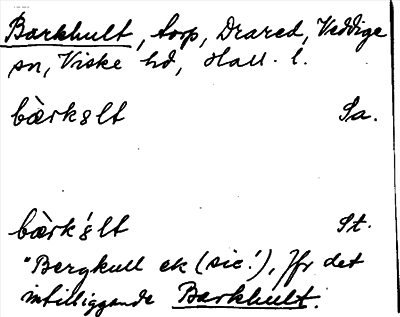 Barkhult, torp, Drared, Veddige
sn, Viske hd, Hall. l.
bàrkₔlt Sa.
bàrk´ₔlt St.
"Bergkull ek (sic!), Jfr det
intilliggande Barkhult.